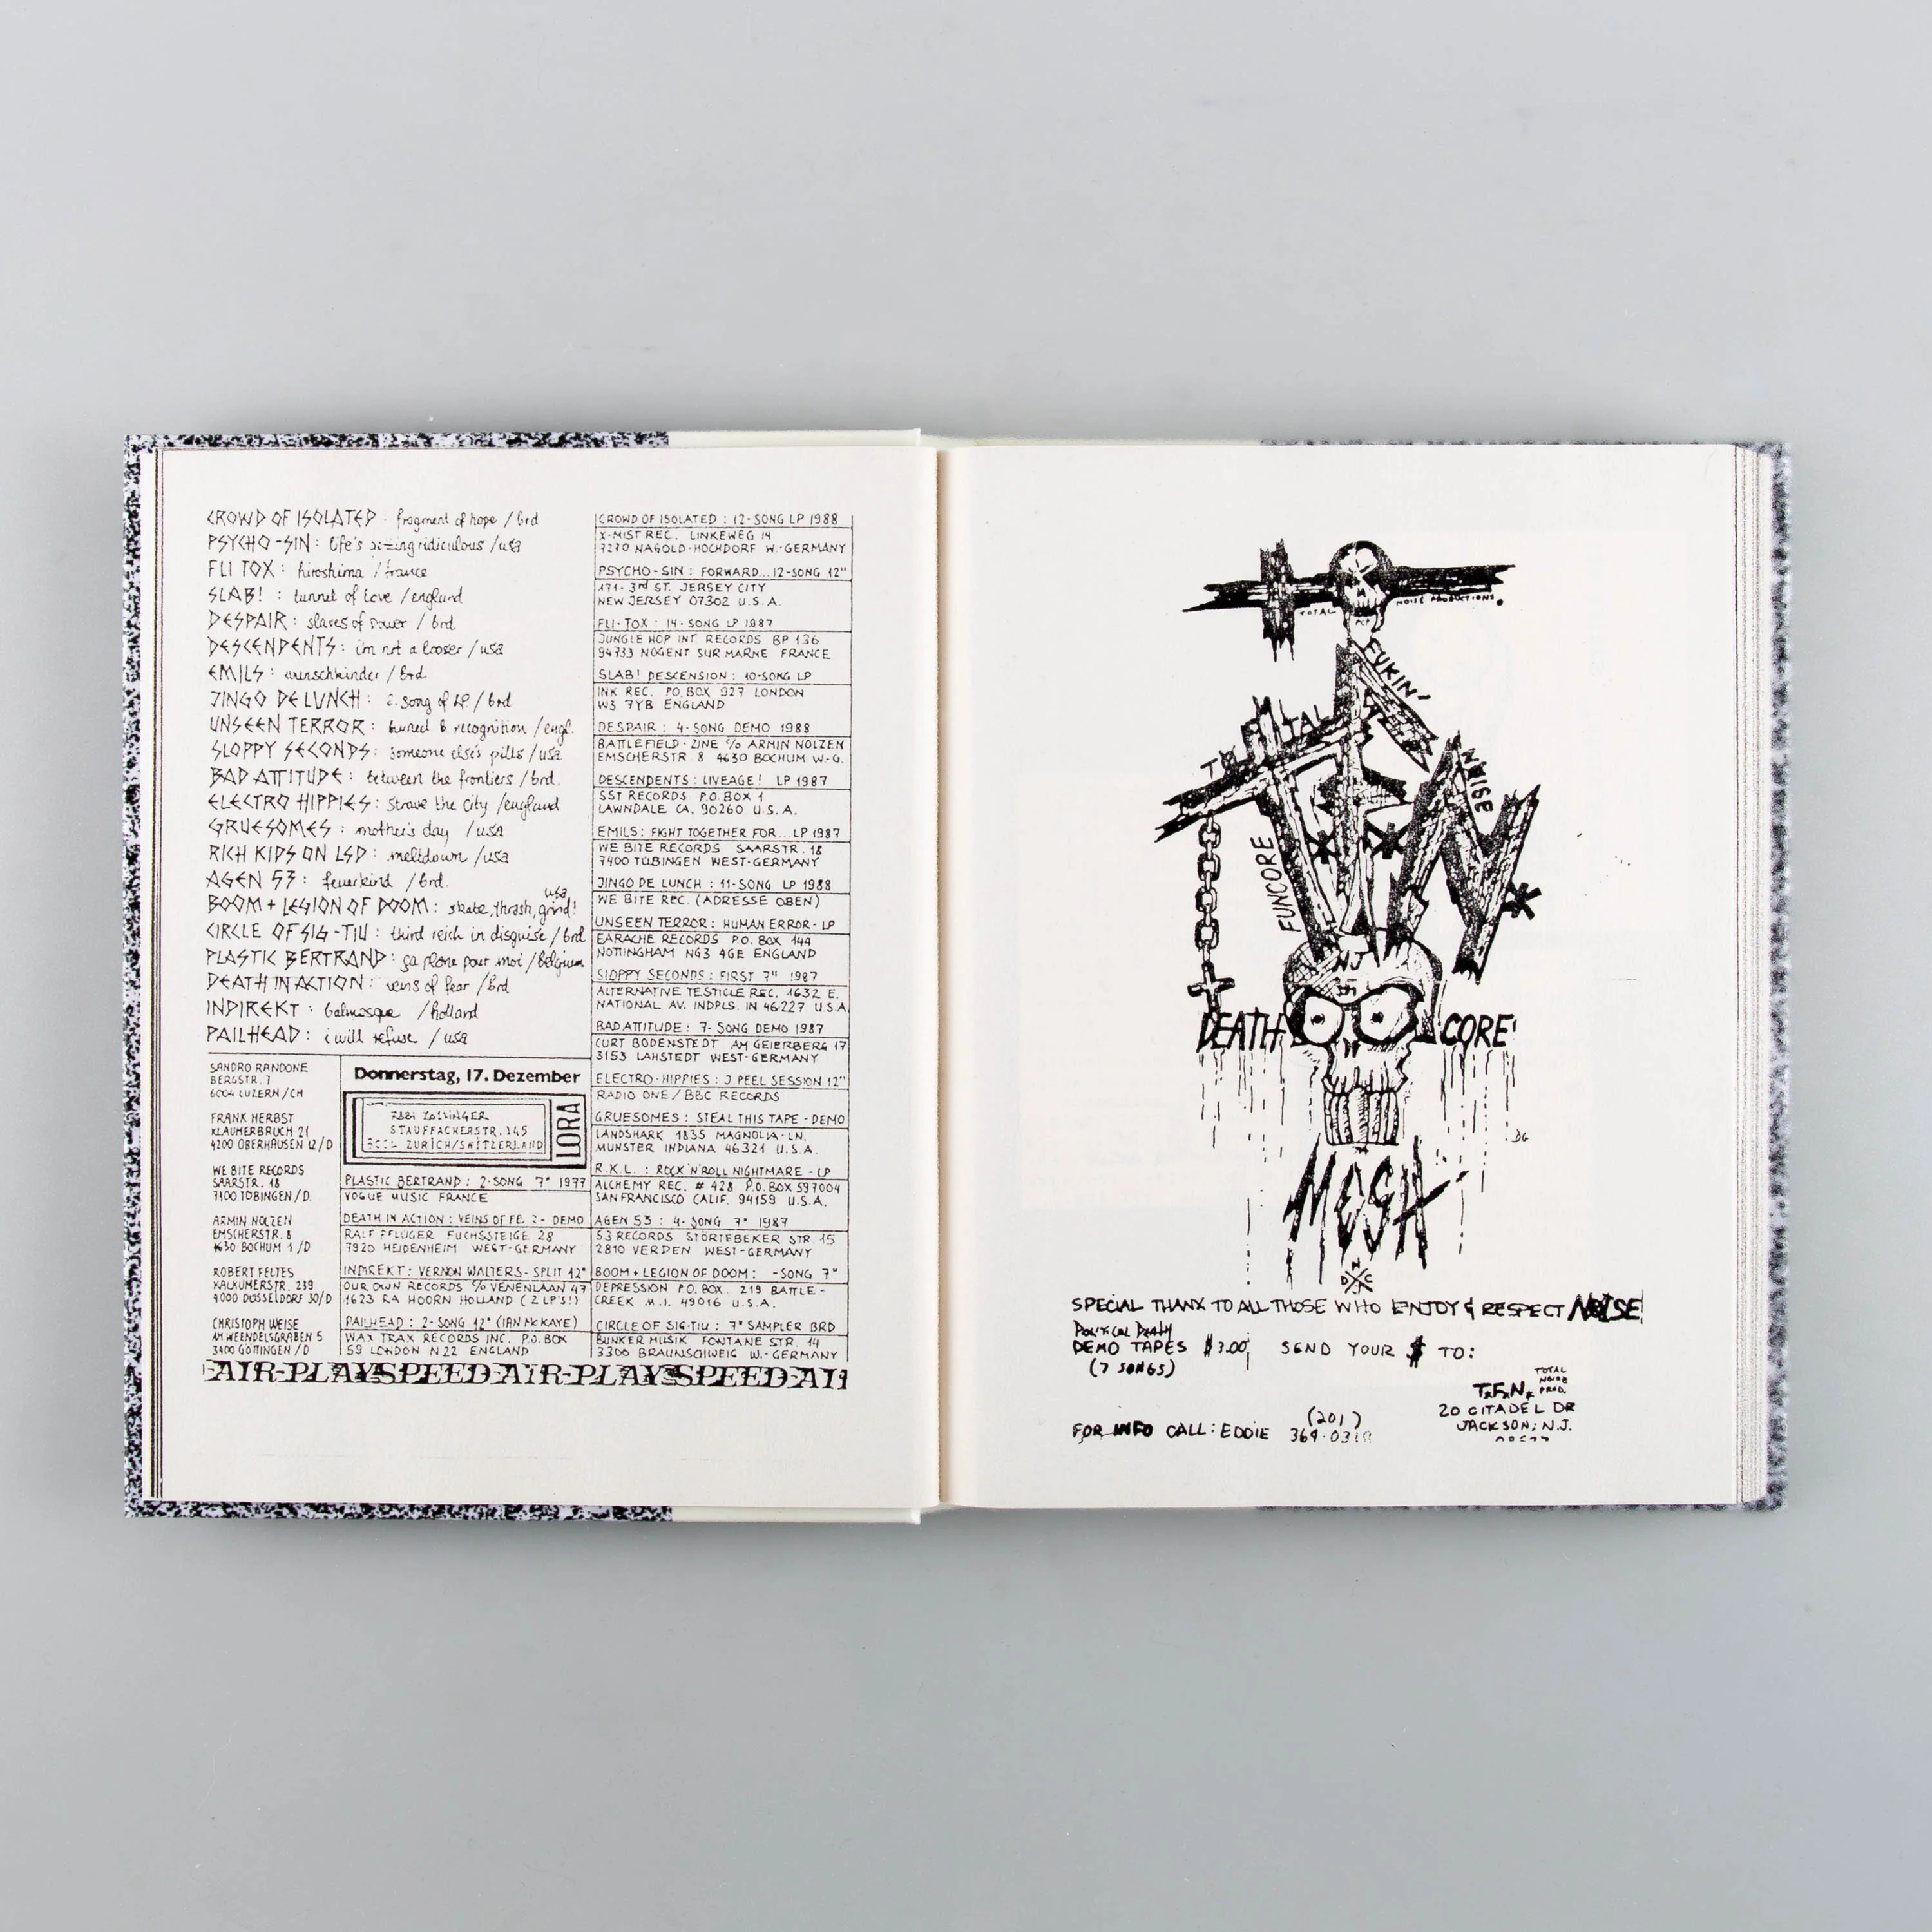 CROWD OF ISOLATED : fragment of hope / brd
PSYCHO-SIN : life's ridiculous / usa
FLI TOX : hiroshima / france
SLAB! : tunnel of love / england
DESPAIR : slaves of power / brd
DESCENDENTS : i'm not a looser / usa
EMILS : wunschkinder / brd
JINGO DE LUNCH : 2. song of LP / brd
UNSEEN TERROR : buried b recognition / engl.
SLOPPY SECONDS : someone else's pills / usa
BAD ATTITUDE : between the frontiers / brd.
ELECTRO HIPPIES : starve the city / england
GRUESOMES : mother's day / usa
RICH KIDS ON LSD : meltdown / usa
AGEN 53 : feuerkind / brd.
BOOM + LEGION OF DOOM : skate, thrash, grind! usa
CIRCLE OF SIG-TIU : third reich in disguise / brd
PLASTIC BERTRAND : ça plane pour moi / belgium
DEATH IN ACTION : veins of fear / brd
INDIREKT : / holland
PAILHEAD : i will refuse / usa
SANDRO RANDONE
BERGSTR. 7
6004 LUZERN / CH
FRANK HERBST
KLAUMERBRUCH 21
4200 OBERHAUSEN 12/D
WE BITE RECORDS
SAARSTR. 18
7400 TÜBINGEN / D.
ARMIN NOLZEN
EMSCHERSTR. 8
4630 BOCHUM 1 /D
ROBERT FELTES
KALKUMERSTR. 239
4000 DÜSSELDORF 30/D
CHRISTOPH WEISE
AM WEENDELSGRABEN 5
3400 GÖTTINGEN / D
Donnerstag, 17. Dezember
ZOLLINGER
STAUFFACHERSTR. 145
ZURICH/SWITZERLAND
LORA
PLASTIC BERTRAND : 2-SONG 7" 1977
VOGUE MUSIC FRANCE
DEATH IN ACTION : VEINS OF FE. 2- DEMO
RALF PFLÜGER FUCHSSTEIGE 28
7920 HEIDENHEIM WEST-GERMANY
INDIREKT : VERNON WALTERS - SPLIT 12"
OUR OWN RECORDS % VENENLAAN 47
1623 RA HOORN HOLLAND (2 LP'S!)
PAILHEAD : 2-SONG 12" (IAN McKAYE)
WAX TRAX RECORDS INC. P.O. BOX
59 LONDON N22 ENGLAND
CROWD OF ISOLATED : 12-SONG LP 1988
X-MIST REC. LINKEWEG 14
7270 NAGOLD-HOCHDORF W.-GERMANY
PSYCHO-SIN : FORWARD... 12-SONG 12"
171- 3rd ST. JERSEY CITY
NEW JERSEY 07302 U.S.A.
FLI-TOX : 14-SONG LP 1987
JUNGLE HOP INT. RECORDS BP 136
94733 NOGENT SUR MARNE FRANCE
SLAB! DESCENSION : 10-SONG LP
INK REC. P.O. BOX 927 LONDON
W3 7YB ENGLAND
DESPAIR : 4-SONG DEMO 1988
BATTLEFIELD-ZINE % ARMIN NOLZEN
EMSCHERSTR. 8 4630 BOCHUM W-G.
DESCENDENTS : LIVEAGE! LP 1987
SST RECORDS P.O. BOX 1
LAWNDALE CA. 90260 U.S.A.
EMILS : FIGHT TOGETHER FOR... LP 1987
WE BITE RECORDS SAARSTR. 18
7400 TÜBINGEN WEST-GERMANY
JINGO DE LUNCH : 11-SONG LP 1988
WE BITE REC. (ADRESSE OBEN)
UNSEEN TERROR : HUMAN ERROR - LP
EARACHE RECORDS P.O. BOX 144
NOTTINGHAM NG3 4GE ENGLAND
SLOPPY SECONDS : FIRST 7" 1987
ALTERNATIVE TESTICLE REC. 1632 E.
NATIONAL AV. INDPLS. IN 46227 U.S.A.
BAD ATTITUDE : 7-SONG DEMO 1987
CURT BODENSTEDT AM GEIERBERG 17
3153 LAHSTEDT WEST-GERMANY
ELECTRO-HIPPIES : J PEEL SESSION 12"
RADIO ONE / BBC RECORDS
GRUESOMES : STEAL THIS TAPE - DEMO
LANDSHARK 1835 MAGNOLIA-LN.
MUNSTER INDIANA 46321 U.S.A.
R.K.L. : ROCK'N'ROLL NIGHTMARE - LP
ALCHEMY REC. # 428 P.O. BOX 597004
SAN FRANCISCO CALIF. 94159 U.S.A.
AGEN 53 : 4-SONG 7" 1987
53 RECORDS STÖRTEBEKER STR. 15
2810 VERDEN WEST-GERMANY
BOOM + LEGION OF DOOM : -SONG 7"
DEPRESSION P.O. BOX. 219 BATTLE-
CREEK M.I. 49016 U.S.A.
CIRCLE OF SIG-TIU : 7" SAMPLER BRD
BUNKER MUSIK FONTANE STR. 14
3300 BRAUNSCHWEIG W.-GERMANY
AIR-PLAYSPEED AIR-PLAYSPEED AI
TOTAL NOISE PRODUCTIONS.
TOTAL
FUKIN'
NOISE
T*F*N*
FUNCORE
NJ
DEATH CORE
DG
MOSH
N
D C
J
SPECIAL THANX TO ALL THOSE WHO ENJOY & RESPECT NOISE!
POLITICAL DEATH
DEMO TAPES $3.00 SEND YOUR $ TO:
(7 SONGS)
T.F.N. TOTAL NOISE PROD.
20 CITADEL DR
JACKSON, N.J.
FOR INFO CALL: EDDIE (201)